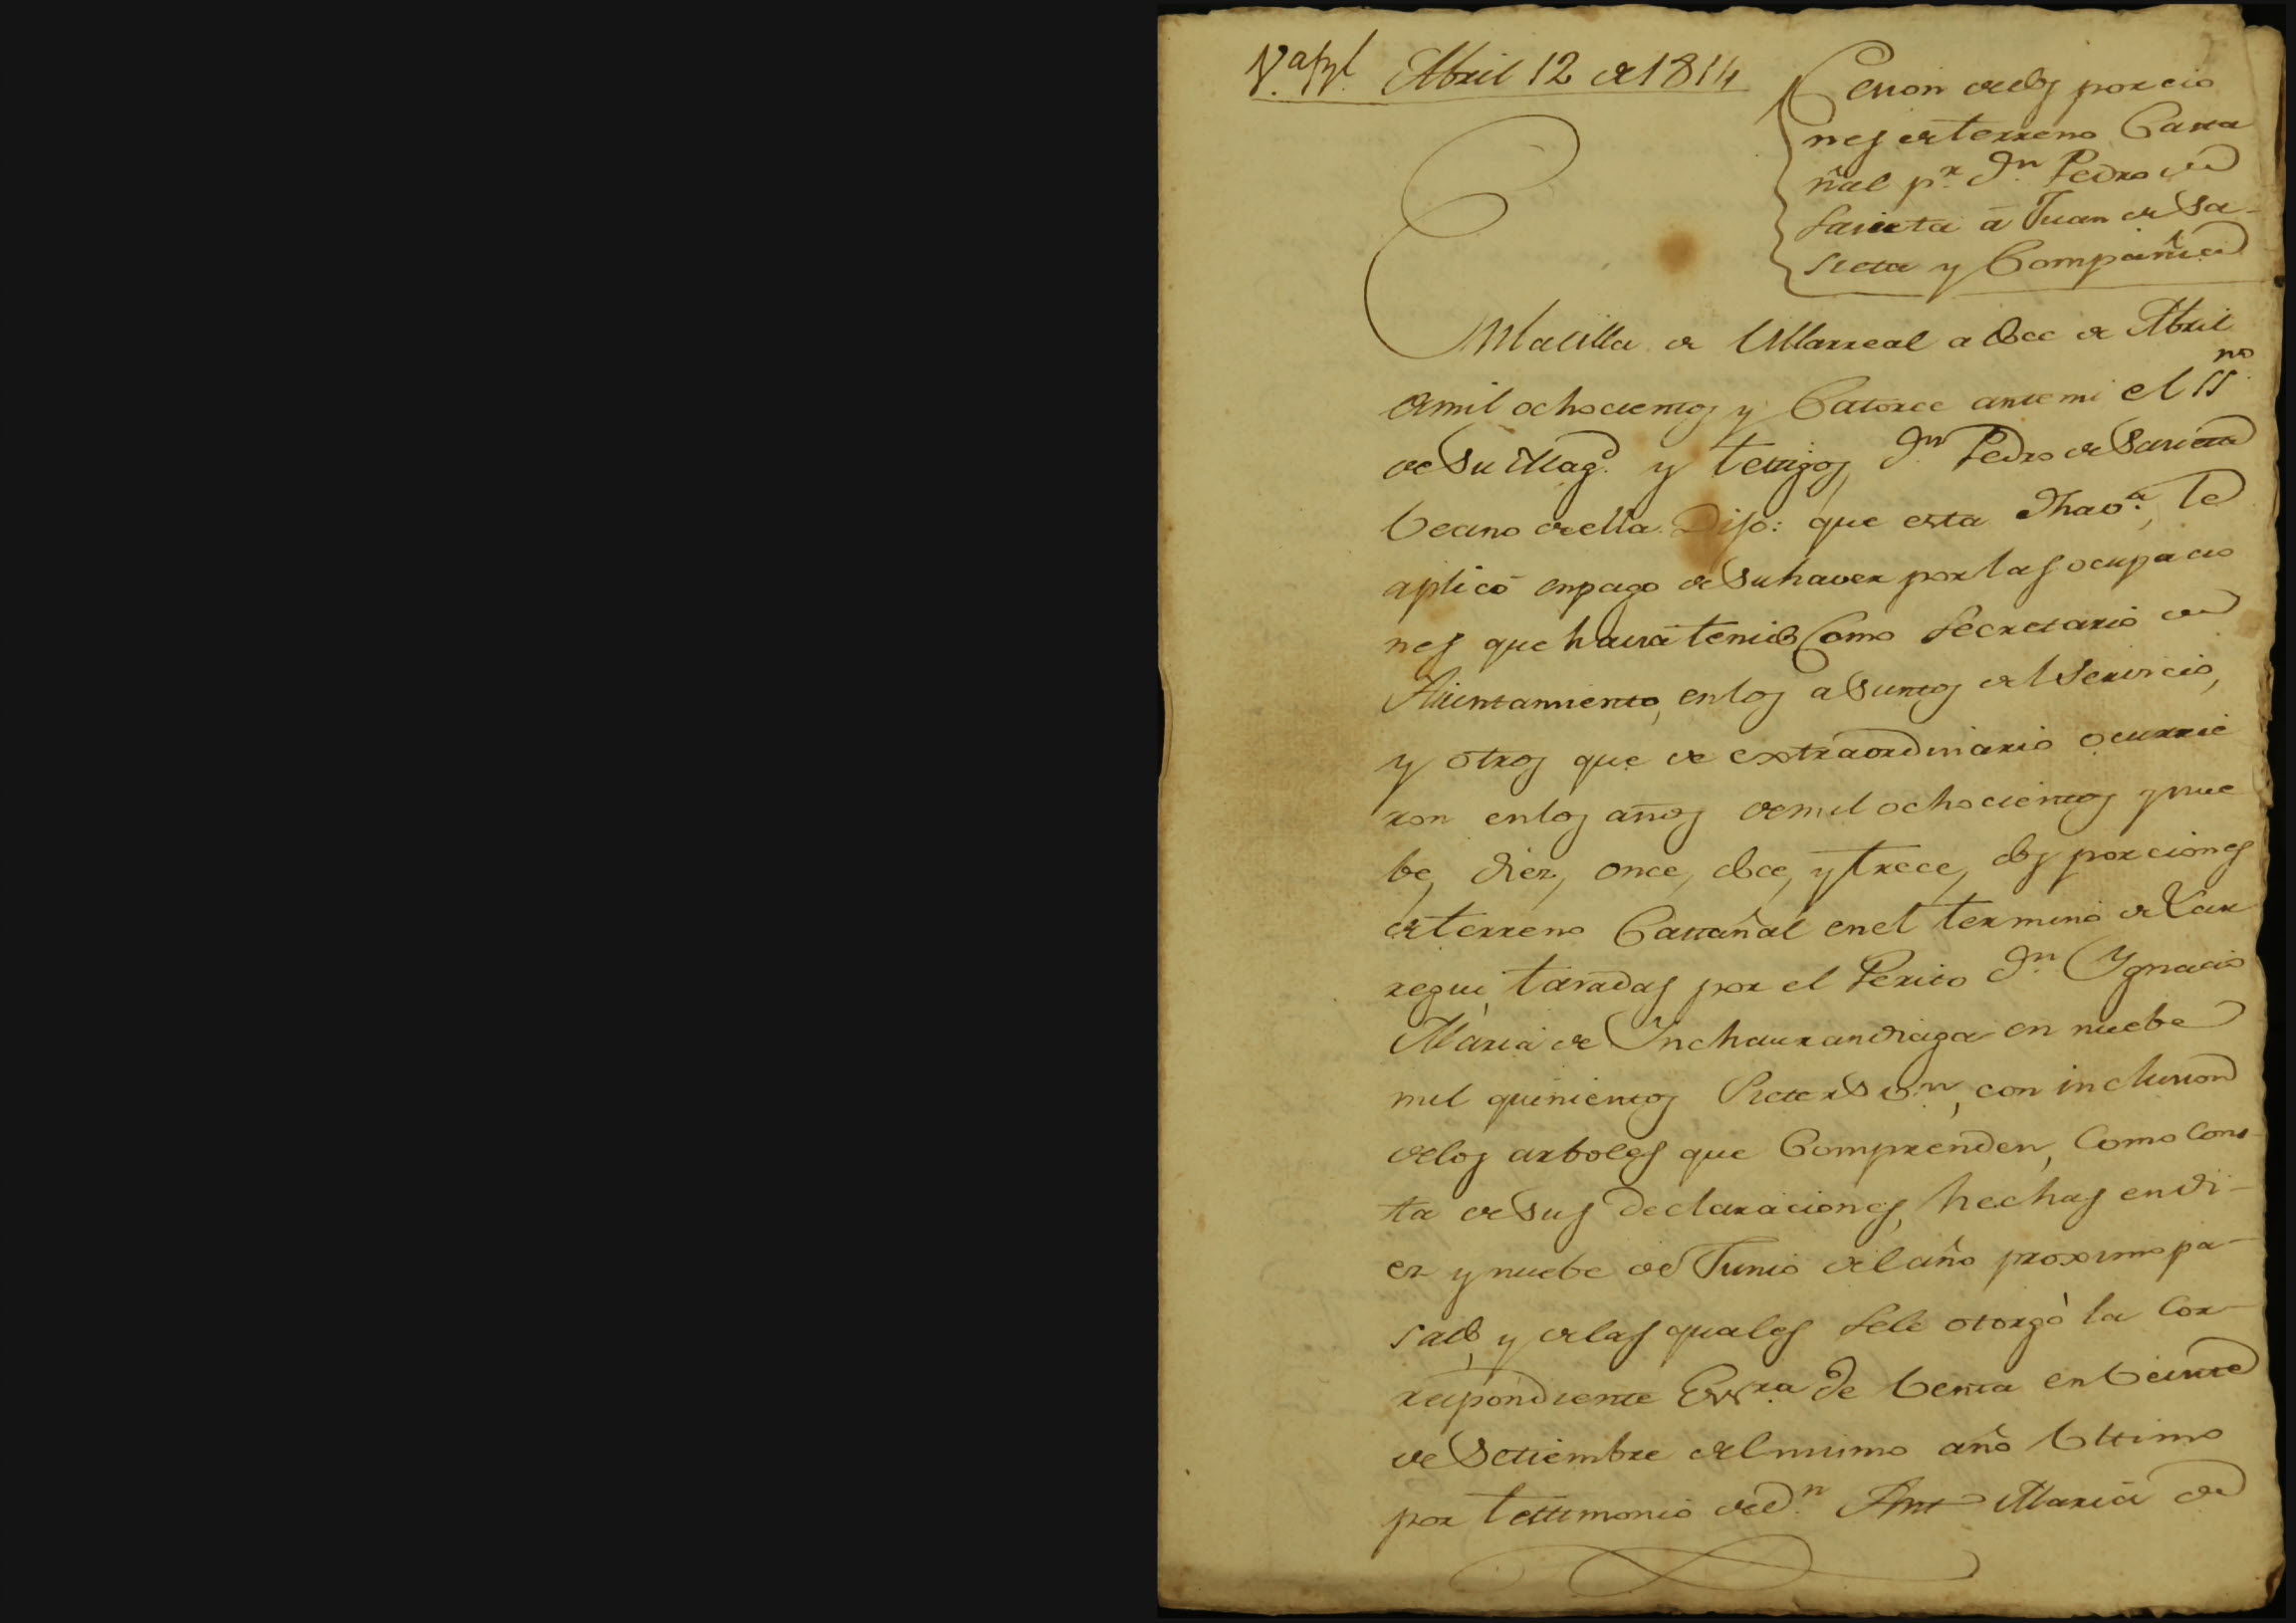 Abril 12 de 1814
Cesion de dos porcio
nes de terreno Casta
ñal pr. Dn. Pedro de
Sasieta á Juan de Sa-
sieta y Compañia
En la Villa de Villarreal a doce de Abril
de mil ochocientos y Catorce ante mi el SSno.
de Su Magd. y testigos, Dn. Pedro de Sasieta
Vecino de ella. Dijo: que esta, le
aplicó en pago de Su haver por las ocupacio
nes que havia tenido Como Secretario de
Aiuntamiento, en los aSuntos del Servicio,
y otros que de extraordinario ocurrie
ron en los años de mil ochocientos y nue
be, diez, once, doce, y trece, dos porciones
de terreno Castañal en el termino de Lar
regui, tasadas por el Perito Dn. Ygnacio
Maria de Inchaurandiaga en nuebe
mil quinientos Siete rs vn., con inclusion
de los arboles que Comprenden, Como Cons-
ta de Sus Declaraciones, hechas en di-
ez y nuebe de Junio del año proximo pa-
sado, y de las quales Sele otorgò la Cor-
respondiente Essra. de Venta en Veinte
de Setiembre del mismo año Ultimo
por testimonio de Dn. Ant Maria de